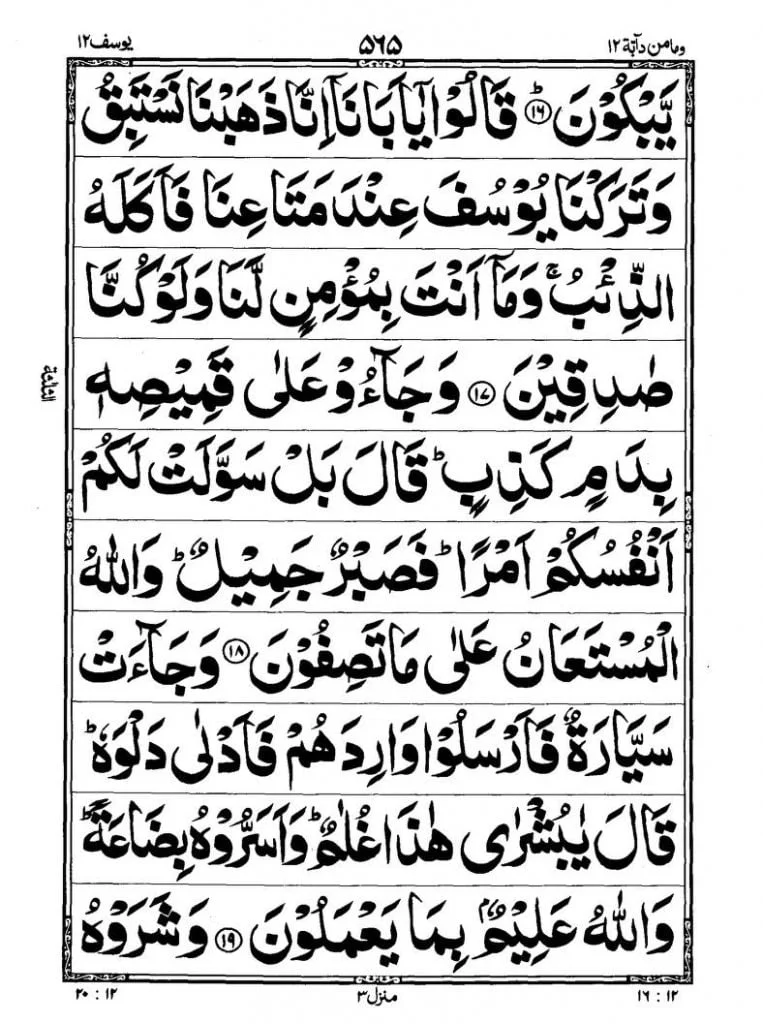 وما من دآبة ١٢ ۵٦۵ يوسف ١٢
يَّبْكُوْنَ ؕ‏﴿۱۶﴾ قَالُوْا يٰۤاَبَانَاۤ اِنَّا ذَهَبْنَا نَسْتَبِقُ
وَتَرَكْنَا يُوْسُفَ عِنْدَ مَتَاعِنَا فَاَكَلَهُ
الذِّئْبُ ۚ وَمَاۤ اَنْتَ بِمُؤْمِنٍ لَّنَا وَلَوْ كُنَّا
صٰدِقِيْنَ ﴿۱۷﴾ وَجَآءُوْ عَلٰى قَمِيْصِهٖ
بِدَمٍ كَذِبٍ ؕ قَالَ بَلْ سَوَّلَتْ لَكُمْ
اَنْفُسُكُمْ اَمْرًا ؕ فَصَبْرٌ جَمِيْلٌ ؕ وَاللّٰهُ
الْمُسْتَعَانُ عَلٰى مَا تَصِفُوْنَ ﴿۱۸﴾ وَجَآءَتْ
سَيَّارَةٌ فَاَرْسَلُوْا وَارِدَهُمْ فَاَدْلٰى دَلْوَهٗ ؕ
قَالَ يٰبُشْرٰى هٰذَا غُلٰمٌ ؕ وَاَسَرُّوْهُ بِضَاعَةً ؕ
وَاللّٰهُ عَلِيْمٌۢ بِمَا يَعْمَلُوْنَ ﴿۱۹﴾ وَشَرَوْهُ
١٢ : ١٦ منزل ٣ ١٢ : ٢٠